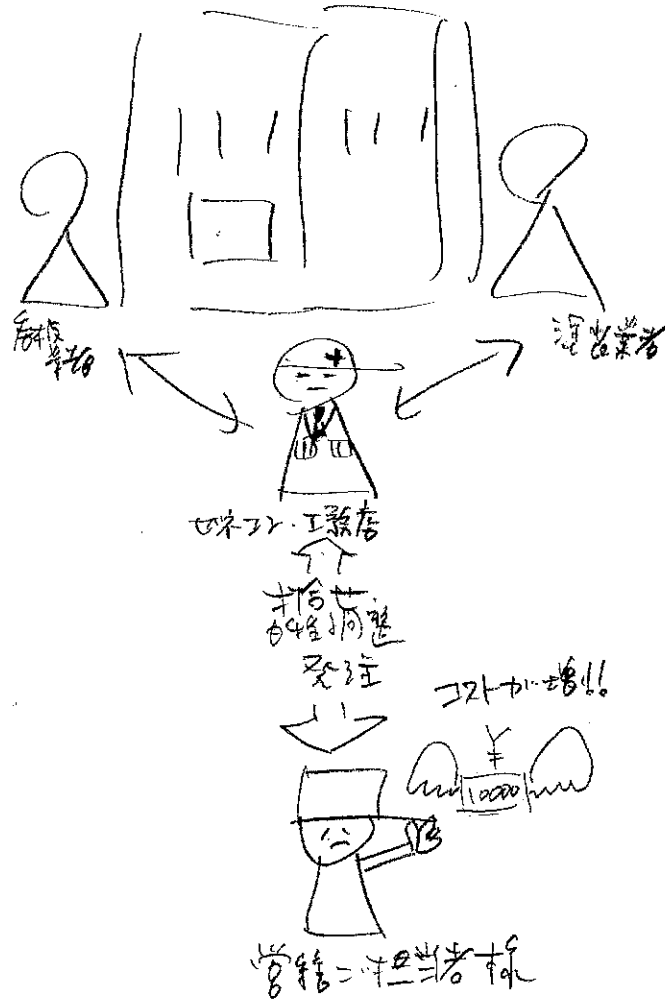 看板
業者
塗装業者
ゼネコン・工務店
打合せ
日程調整
発注
コストが増!!
¥
10000
営繕ご担当者様